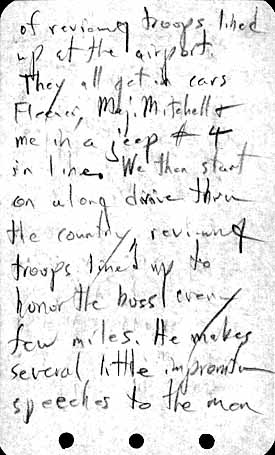 of reviewing troops lined
up at the airport.
They all get in cars
Maj. Mitchell &
me in a jeep # 4
in line. We then start
on along drive thru
the country reviewing
troops lined up to
honor the boss every
few miles. He makes
several little impromtu
speeches to the men